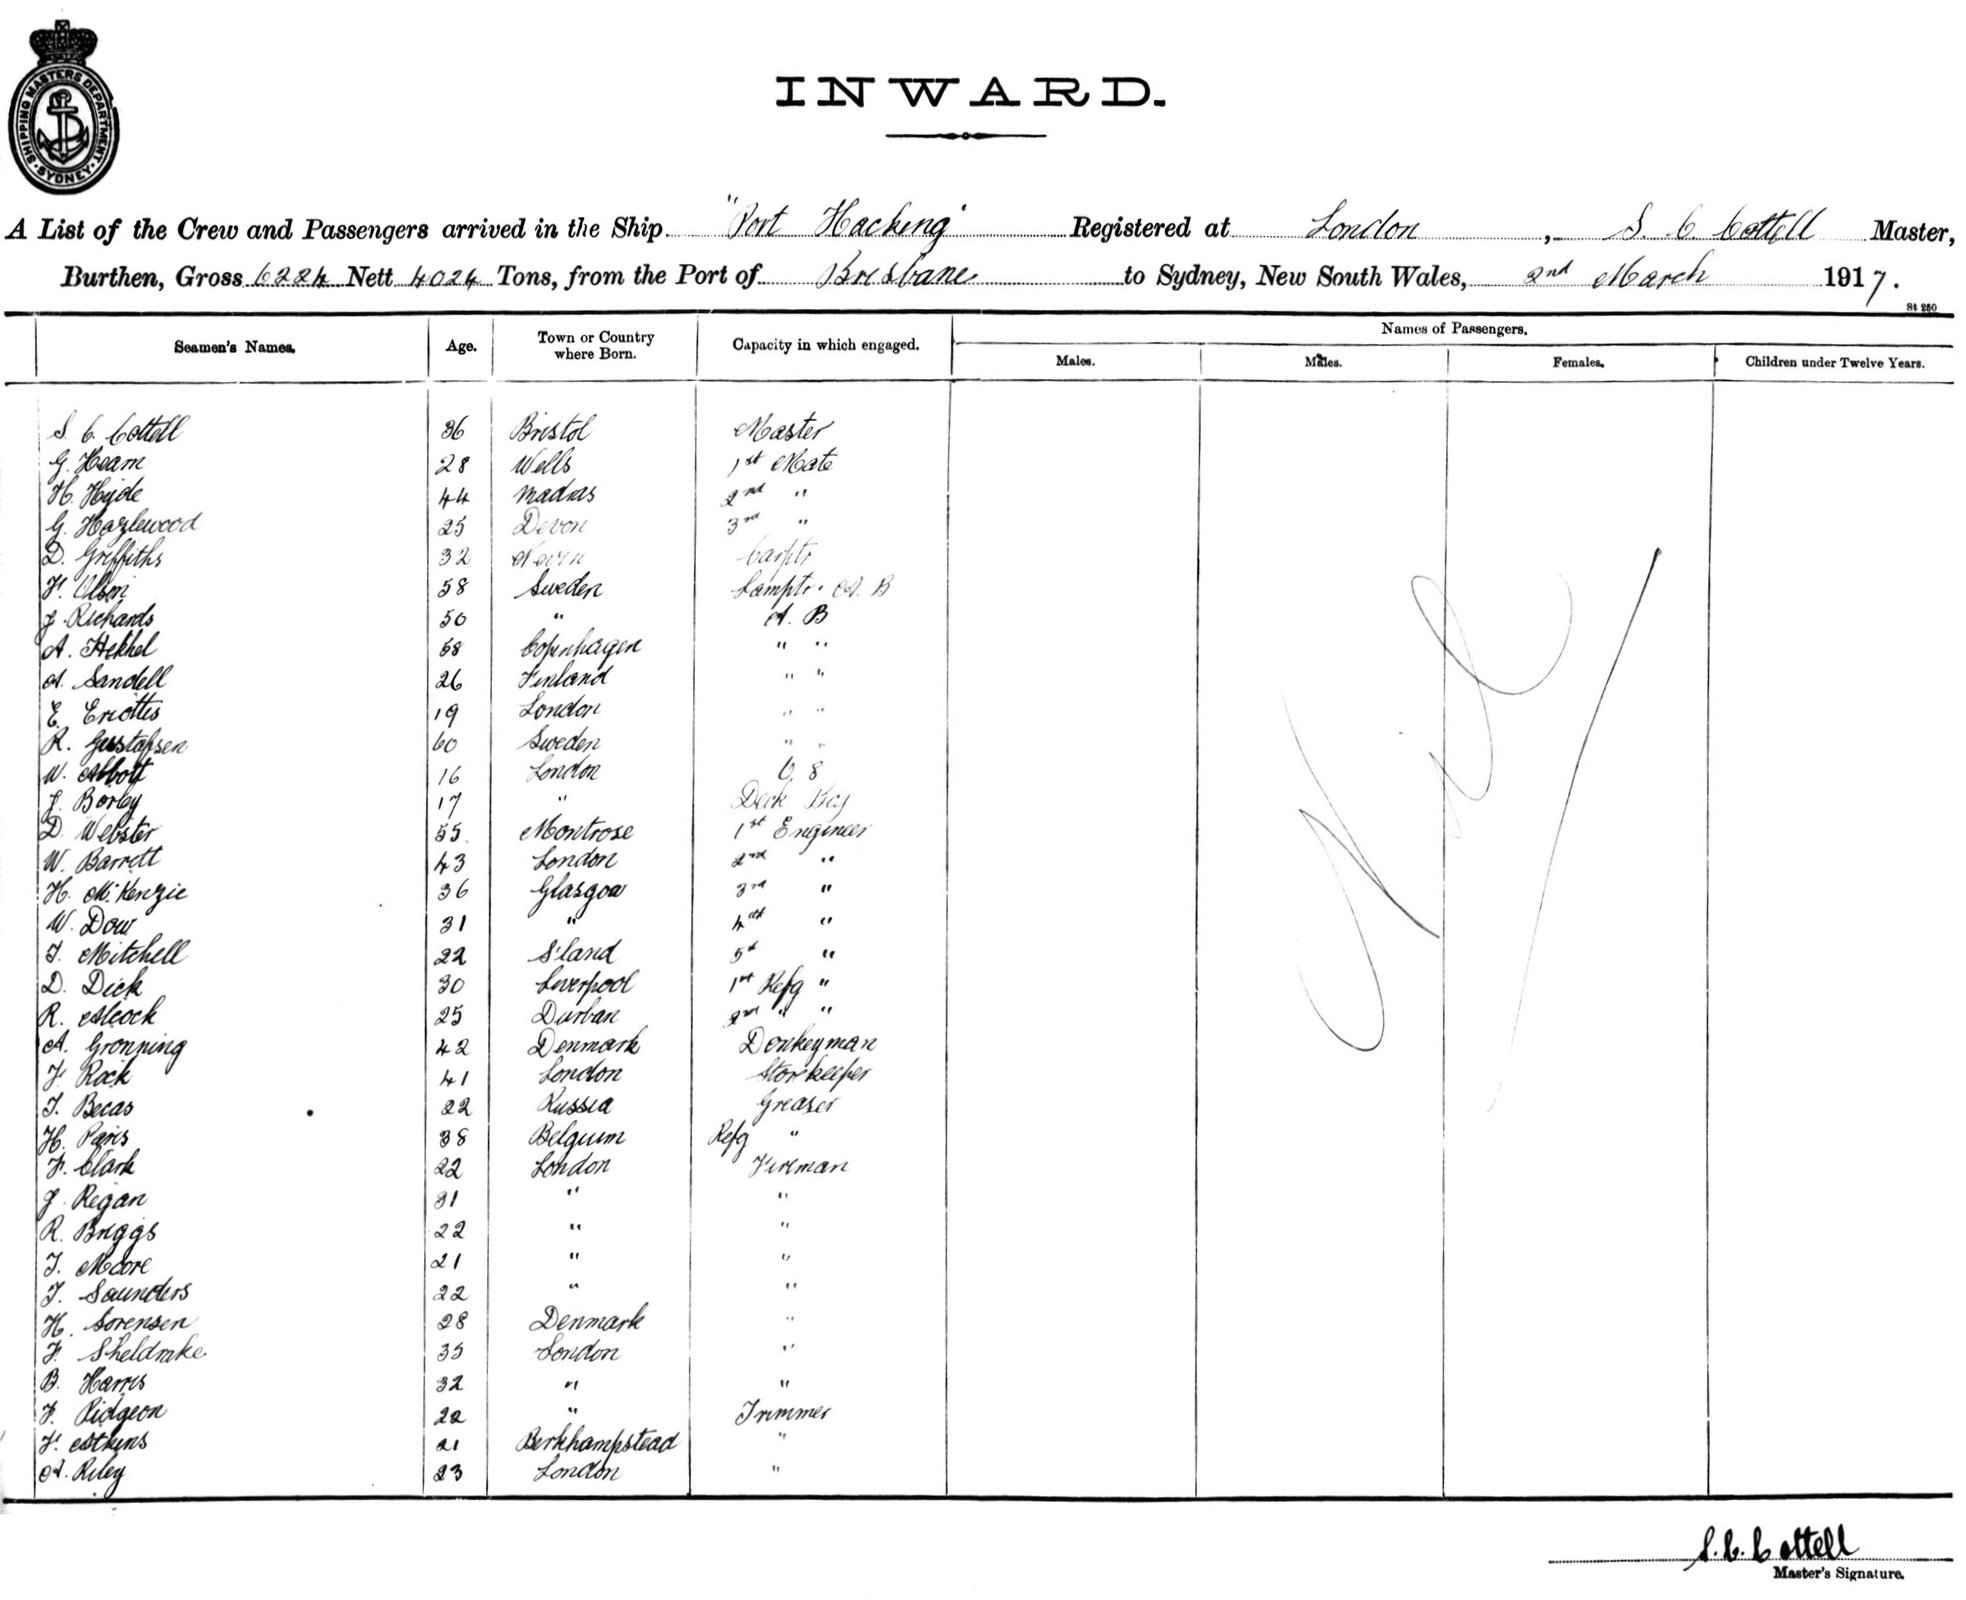 SHIPPING MASTERS DEPARTMENT. SYDNEY
INWARD.
A List of the Crew and Passengers arrived in the Ship "Port Hacking" Registered at London, S. C. Cottell Master,
Burthen, Gross 6224 Nett 4024 Tons, from the Port of Brisbane to Sydney, New South Wales, 2nd March 1917.
St 250
Seamen's Names. Age. Town or Country where Born. Capacity in which engaged. Names of Passengers.
Males. Males. Females. Children under Twelve Years.
S. C. Cottell 36 Bristol Master
G. Heam 28 Wells 1st Mate
H. Hyde 44 Madras 2nd "
G. Hazlewood 25 Devon 3rd "
D. Griffiths 32 Nevin Carptr
F. Olson 58 Sweden Lamptr. A. B
J. Richards 50 " A. B
A. Hekhel 58 Copenhagen " "
A. Sandell 26 Finland " "
E. Eriottis 19 London " "
R. Gustafsen 60 Sweden " "
W. Abbott 16 London O. S
J. Borley 17 " Deck Boy
D. Webster 55 Montrose 1st Engineer
W. Barrett 43 London 2nd "
H. McKenzie 36 Glasgow 3rd "
W. Dow 31 " 4th "
T. Mitchell 22 S'land 5th "
D. Dick 30 Liverpool 1st Refg "
R. Alcock 25 Durban 2nd " "
A. Gronning 42 Denmark Donkeyman
F. Rock 41 London Storekeeper
T. Becas 22 Russia Greaser
H. Paris 38 Belgium Refg "
F. Clark 22 London Fireman
J. Regan 31 " "
R. Briggs 22 " "
T. Moore 21 " "
T. Saunders 22 " "
H. Sorensen 28 Denmark "
F. Sheldrake 35 London "
B. Harris 32 " "
F. Pidgeon 22 " Trimmer
F. Atkins 21 Berkhampstead "
A. Riley 23 London "
Nil
S. C. Cottell
Master's Signature.